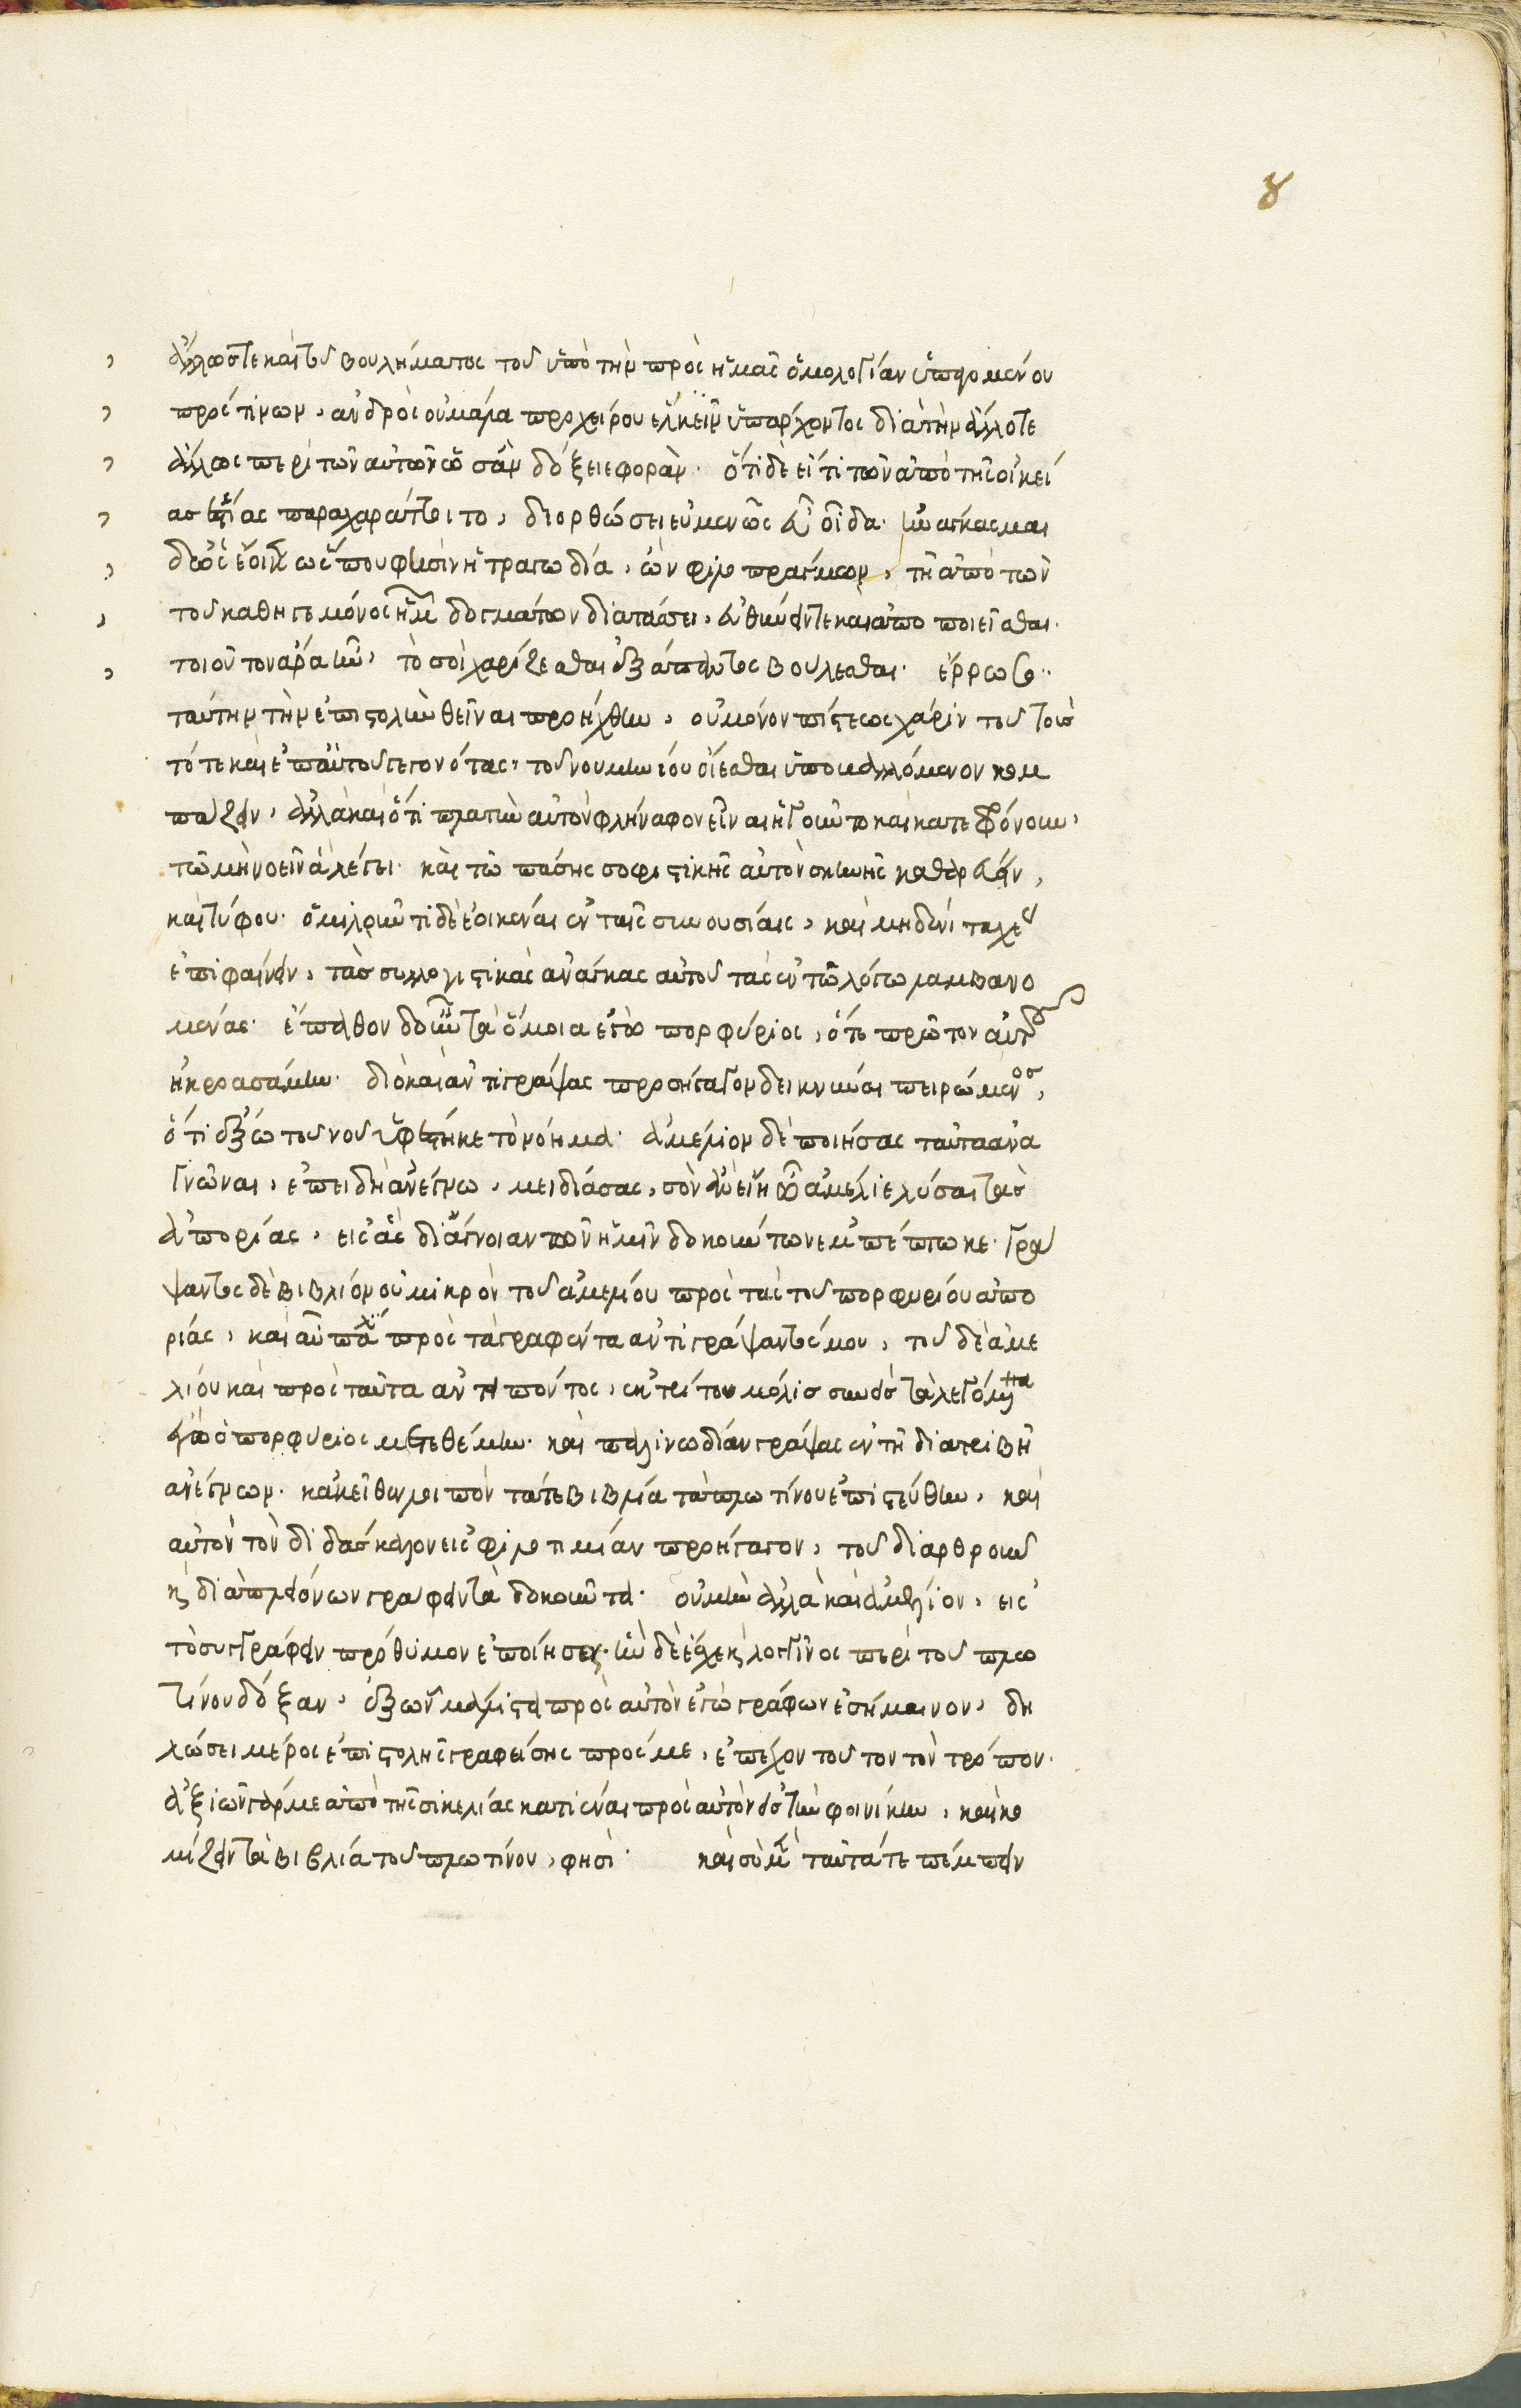 ἄλλως τε καὶ τοῦ βουλήματος τοῦ ὑπὸ τὴν πρὸς ἡμᾶς ὁμολογίαν ὑπαγομένου
πρός τινων, ἀνδρὸς οὐ μάλα προχείρου ἑλκεῖν ὑπάρχοντος διὰ τὴν ἄλλοτε
ἄλλως περὶ τῶν αὐτῶν ὡς ἂν δόξειε φοράν. ὅτι δὲ εἴ τι τῶν ἀπὸ τῆς οἰκεί
ας ἑστίας παραχαράττοιτο, διορθώσει εὐμενῶς εὖ οἶδα. ἠνάγκασμαι
δ' ὡς ἔοικε ὡς που φησὶν ἡ τραγωδία, ὢν φιλοπράγμων, τῇ ἀπὸ τῶν
τοῦ καθηγεμόνος ἡμῶν δογμάτων διαστάσει, εὐθύνειν τε καὶ ἀποποιεῖσθαι.
τοιοῦτον ἄρα ἦν, τὸ σοὶ χαρίζεσθαι ἐξ ἅπαντος βούλεσθαι. ἔρρωσο.
ταύτην τὴν ἐπιστολὴν θεῖναι προήχθην, οὐ μόνον πίστεως χάριν τοῦ τοὺς
τότε καὶ ἐπ' αὐτοῦ γεγονότας, τοῦ νουμηνίου οἴεσθαι ὑποβαλλόμενον κομ
πάζειν, ἀλλὰ καὶ ὅτι πλατὺν αὐτὸν φλήναφον εἶναι ἡγοῦντο καὶ κατεφρόνουν,
τῶ μὴ νοεῖν ἃ λέγει. καὶ τῶ πάσης σοφιστικῆς αὐτὸν σκηνῆς καθαρεύειν,
καὶ τύφου. ὁμιλοῦντι δὲ ἐοικέναι ἐν ταῖς συνουσίαις, καὶ μηδενὶ ταχέως
ἐπιφαίνειν, τὰς συλλογιστικὰς ἀνάγκας αὐτοῦ τὰς ἐν τῶ λόγω λαμβανο
μένας. ἔπαθον δ' οὖν τὰ ὅμοια ἐγὼ πορφύριος, ὅτε πρῶτον αὐτοῦ
ἠκροασάμην. διὸ καὶ ἀντιγράψας προσήγαγον δεικνύναι πειρώμενος,
ὅτι ἔξω τοῦ νοῦ ὑφέστηκε τὸ νόημα. ἀμέλιον δὲ ποιήσας ταῦτα ἀνα
γνῶναι, ἐπειδὴ ἀνέγνω, μειδιάσας, σὸν ἂν εἴη ἔφη ὦ ἀμέλιε λῦσαι τὰς
ἀπορίας, εἰς ἃς δι' ἄγνοιαν τῶν ἡμῖν δοκούντων ἐμπέπτωκε. γρά
ψαντος δὲ βιβλίον οὐ μικρὸν τοῦ ἀμελίου πρὸς τὰς τοῦ πορφυρίου ἀπο
ρίας, καὶ αὖ πάλιν πρὸς τὰ γραφέντα ἀντιγράψαντός μου, τοῦ δὲ ἀμε
λίου καὶ πρὸς ταῦτα ἀντειπόντος, ἐκ τρίτων μόλις συνεὶς τὰ λεγόμενα
ἐγὼ ὁ πορφύριος μετεθέμην. καὶ παλινωδίαν γράψας ἐν τῇ διατριβῇ
ἀνέγνων. κἀκεῖθεν λοιπὸν τά τε βιβλία τὰ πλωτίνου ἐπιστεύθην, καὶ
αὐτὸν τὸν διδάσκαλον εἰς φιλοτιμίαν προήγαγον, τοῦ διαρθροῦν
καὶ διὰ πλειόνων γράφειν τὰ δοκοῦντα. οὐ μὴν ἀλλὰ καὶ ἀμέλιον, εἰς
τὸ συγγράφειν πρόθυμον ἐποίησεν. ἣν δὲ ἔσχε καὶ λογγῖνος περὶ τοῦ πλω
τίνου δόξαν, ἐξ ὧν μάλιστα πρὸς αὐτὸν ἐγὼ γράφων ἐσήμαινον, δη
λώσει μέρος ἐπιστολῆς γραφείσης πρός με, ἐπέχον τοῦτον τὸν τρόπον.
ἀξιῶν γάρ με ἀπὸ τῆς σικελίας κατιέναι πρὸς αὐτὸν εἰς τὴν φοινίκην, καὶ κο
μίζειν τὰ βιβλία τοῦ πλωτίνου, φησί. καὶ σὺ μὲν ταῦτά τε πέμπειν